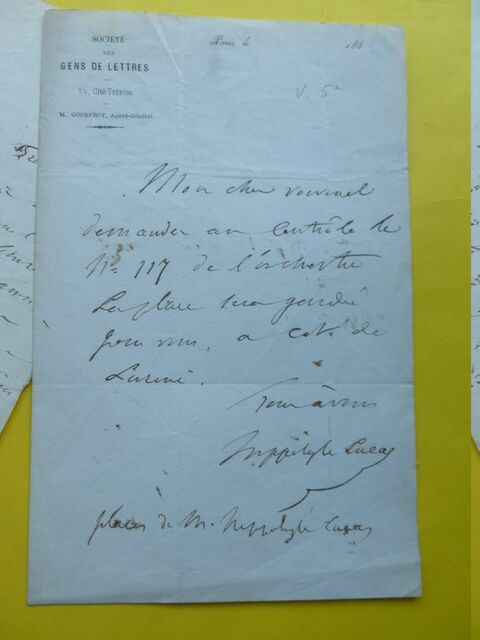 SOCIÉTÉ
DES
GENS DE LETTRES
14, Cité Trévise
M. GODEFROY, Agent-Général.
Paris, le 186
V. 5
Mon cher
demander au Contrôle le
No 117 de l'orchestre
La place sera gardée
pour vous, a coté de
Tout à vous
Hippolyte Lucas
places de M. Hippolyte Lucas